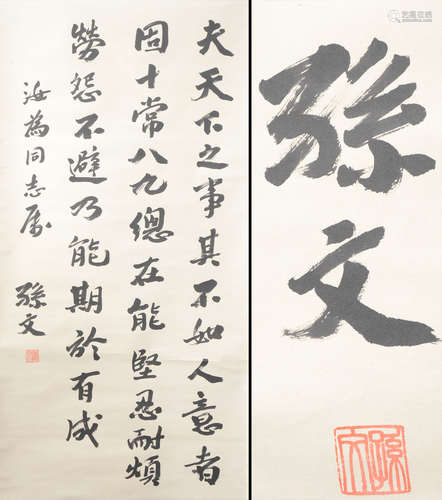 夫天下之事其不如人意者
固十常八九總在能堅忍耐煩
勞怨不避乃能期於有成
汝為同志屬
孫文
孫文
孫文